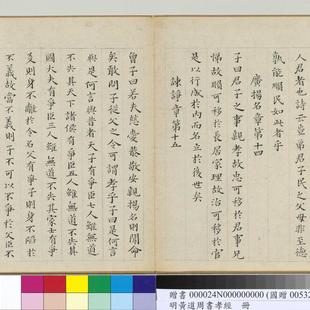 人君者也詩云豈弟君子民之父母非至德
孰能順民如此者乎
廣揚名章第十四
子曰君子之事親孝故忠可移於君事兄
悌故順可移於長居家理故治可移於官
是以行成於內而名立於後世矣
諫諍章第十五
曾子曰若夫慈愛恭敬安親揚名則聞命
矣敢問子從父之令可謂孝乎子曰是何言
與是何言與昔者天子有爭臣七人雖無道
不失其天下諸侯有爭臣五人雖無道不失其
國大夫有爭臣三人雖無道不失其家士有爭
友則身不離於令名父有爭子則身不陷於
不義故當不義則子不可以不爭於父臣不
贈書 000024N000000000 (國贈 00532
明黃道周書孝經 冊